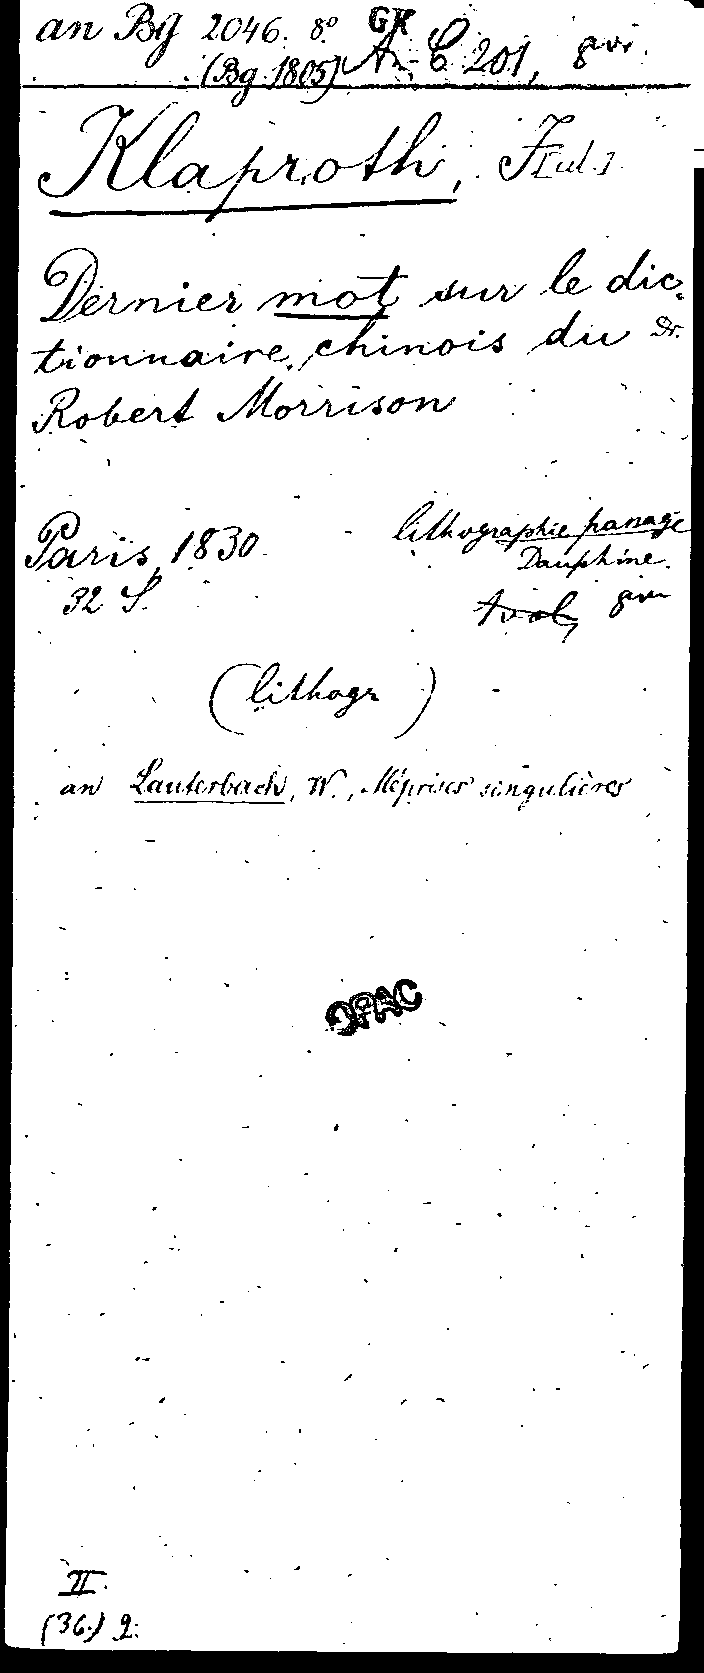 an Bg 2046. 8° GK
(Bg 1805) C 201,
Klaproth, J[ul.]
Dernier mot sur le dic-
tionnaire chinois du Dr.
Robert Morrison
Paris, 1830.
lithographie passage
Dauphine.
32 S.
(lithogr)
an Lauterbach, W., Méprises singulières
OPAC
II.
(36.) 2.